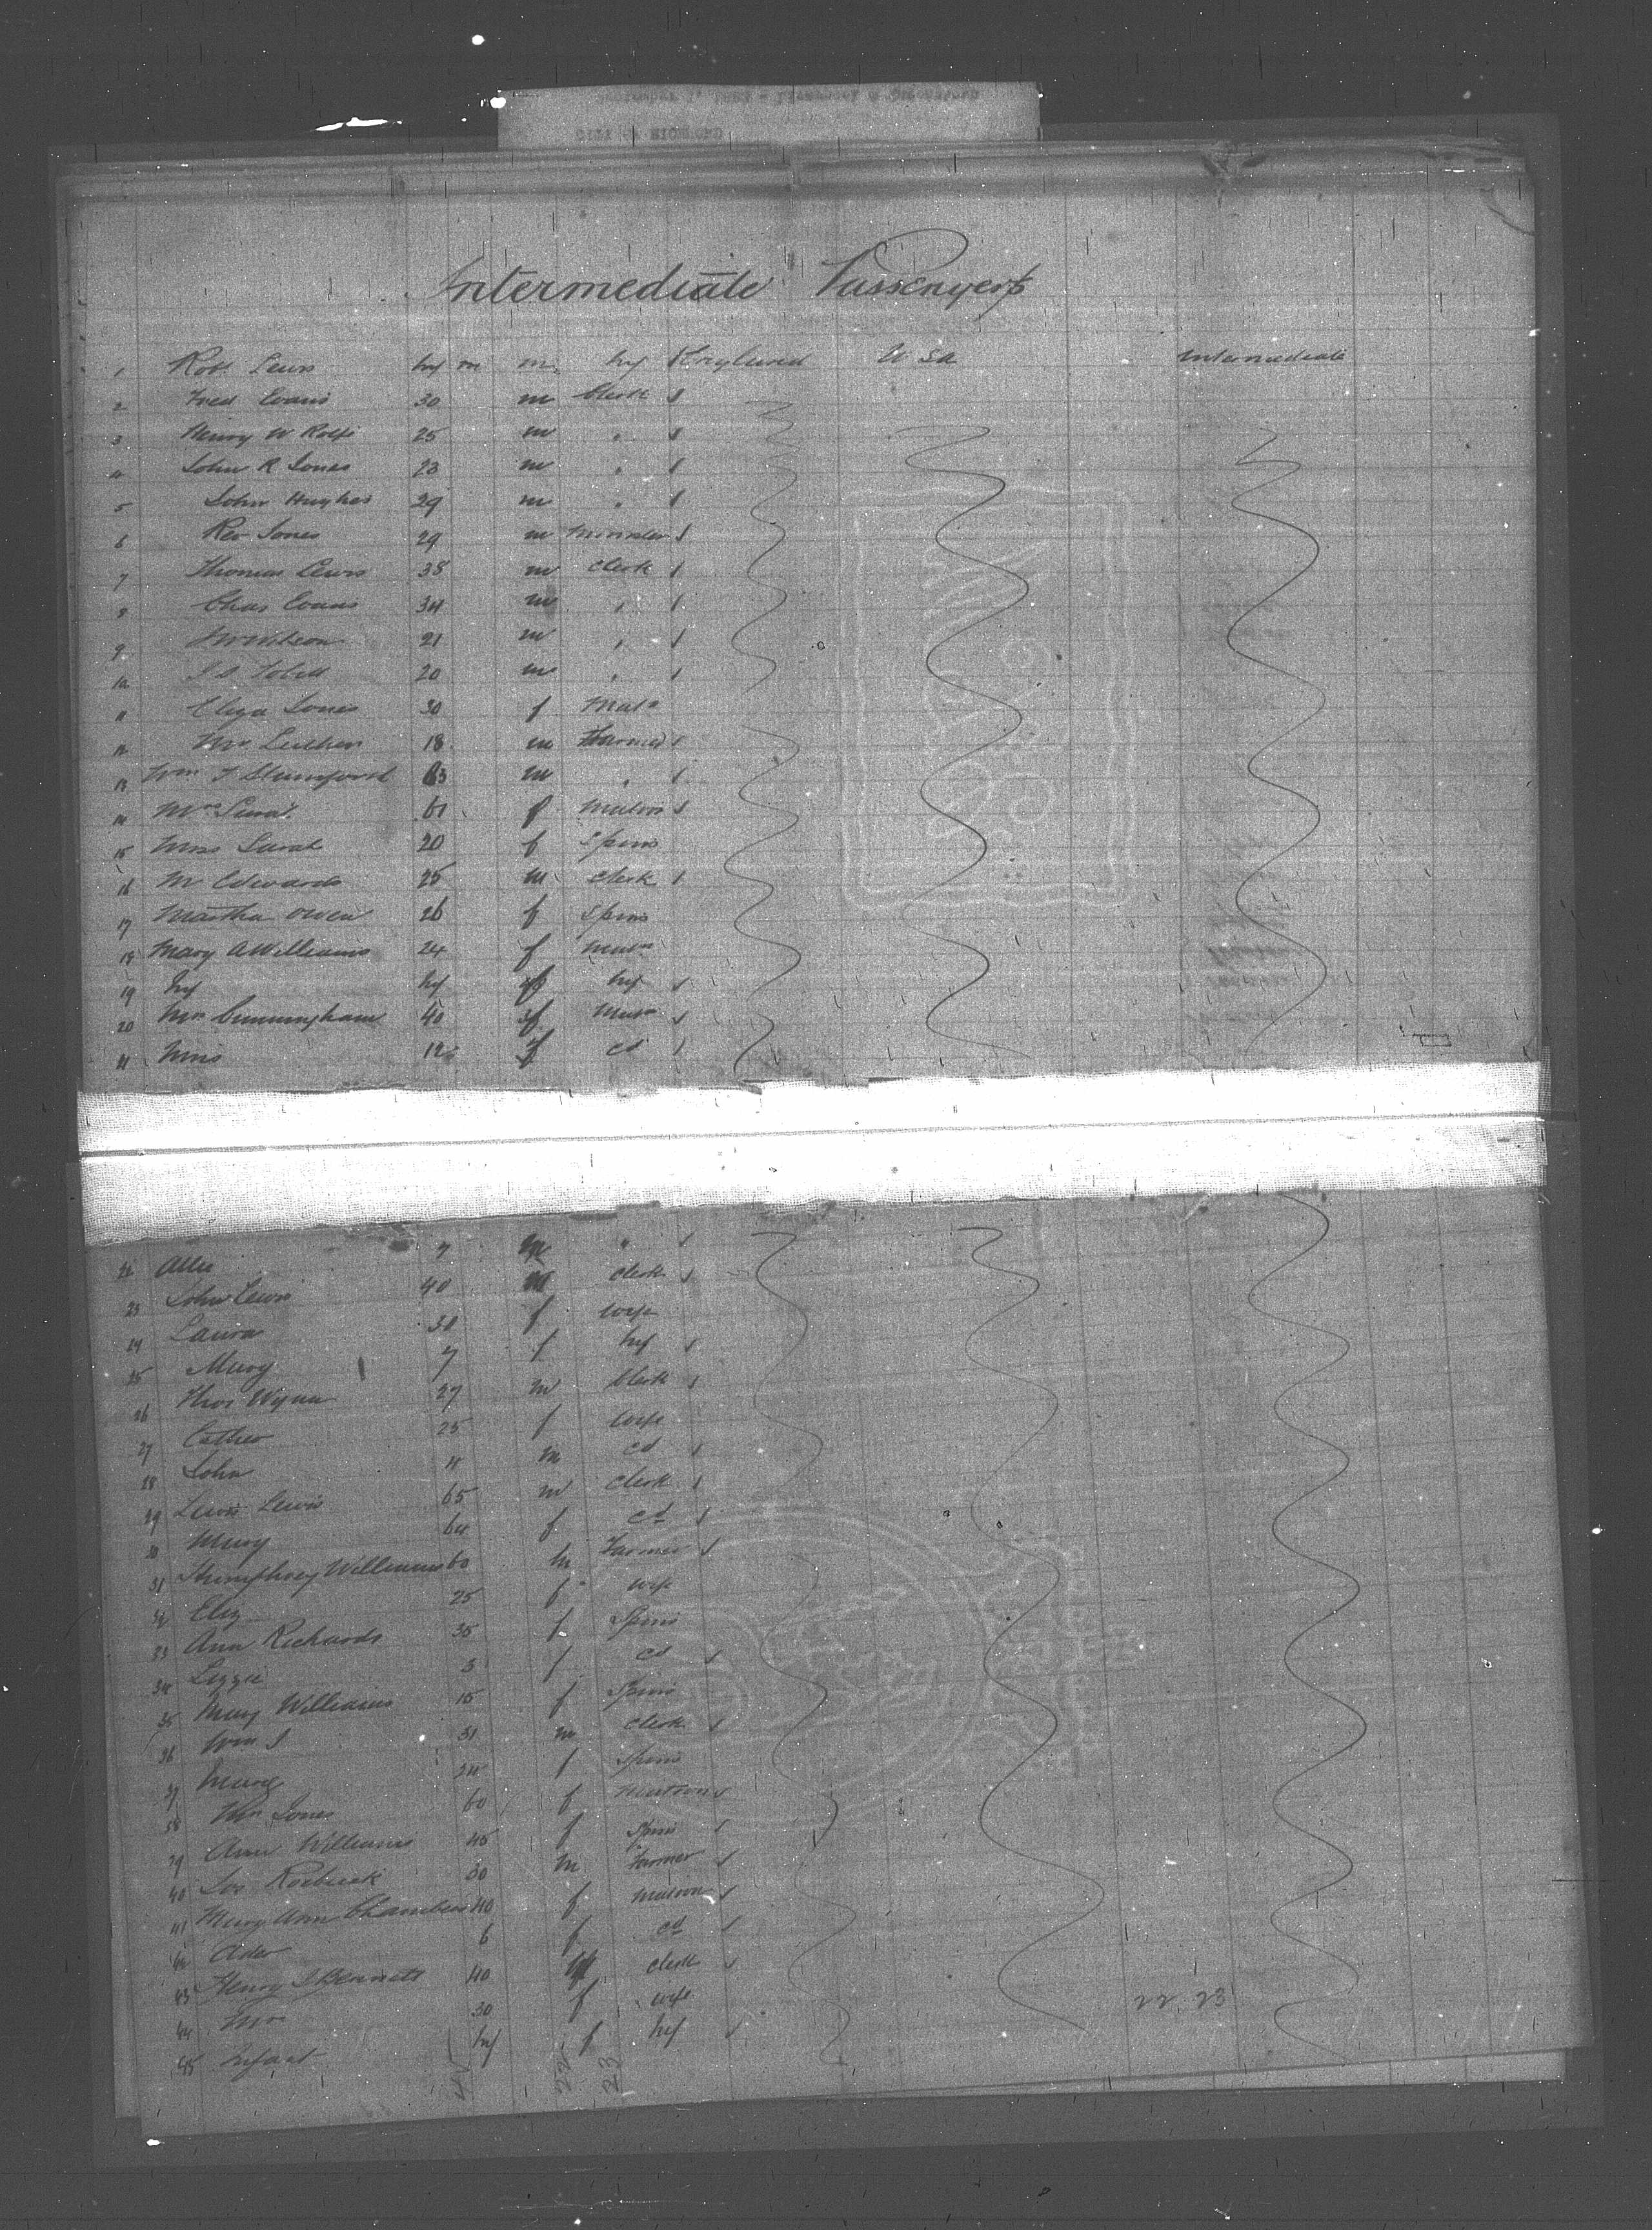 Intermediate Passengers
1 Robt Lewis inf m m inf England U Sa Intermediate
2 Fred Evans 30 m Clerk
3 Henry W Rolfe 25 m "
4 John R Jones 23 m "
5 John Hughes 29 m "
6 Rev Jones 29 m Minister
7 Thomas Lewis 38 m Clerk
8 Chas Evans 34 m "
9 Wilson 21 m "
10 20 m "
11 Eliza Jones 30 f Matn
12 18 m Farmer
13 Wm F 63 m "
14 Mrs 61 f Matron
15 Miss Sarah 20 f Spins
16 Mr Edwards 25 m Clerk
17 Martha Owen 26 f Spins
18 Mary A Williams 24 f Matn
19 Inf inf f inf
20 Mrs Cunningham 40 f Matn
21 Miss 12 f cd
22 7 m "
23 John Lewis 40 m Clerk
24 Laura 38 f Wife
25 Mary 7 f inf
26 Thos Wynn 27 m Clerk
27 Cather 25 f Wife
28 John m cd
29 Lewis Lewis 65 m Clerk
30 Mary 64 f cd
31 Humphrey Williams 60 m Farmer
32 Eliz 25 f Wife
33 Ann Richards 35 f Spins
34 Lizzie 3 f cd
35 Mary Williams 15 f Spins
36 Wm J 31 m Clerk
37 24 f Spins
38 Mrs Jones 60 f Matron
39 Ann Williams 45 f Spins
40 Jos Roebuck 30 m Farmer
41 Mary Ann Chambers 40 f Matron
42 Ada 6 f cd
43 Henry J Bennett 40 m Clerk
44 Mrs 30 f Wife
45 Infant inf f inf
22 23
45 22 23